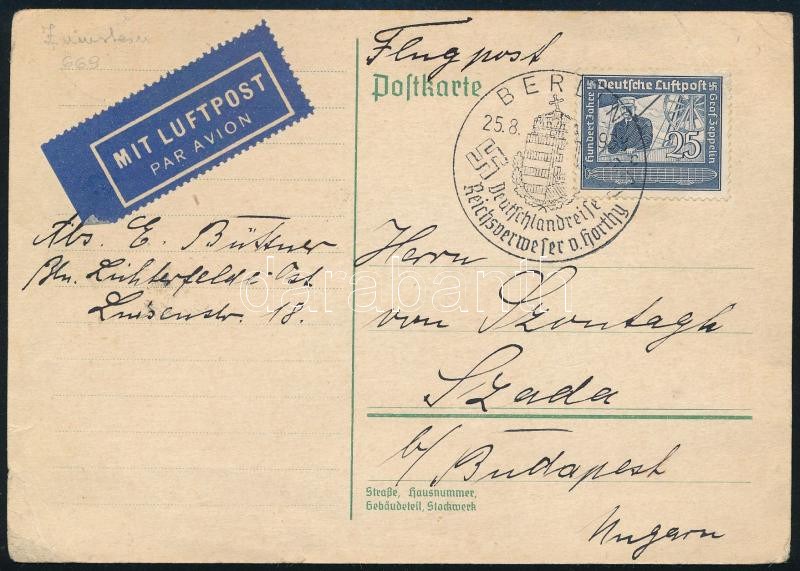 669
MIT LUFTPOST
PAR AVION
Flugpost
Postkarte
BERLIN
25.8.
Deutschlandreise
Reichsverweser v. Horthy
Deutsche Luftpost
Hundert Jahre
Graf Zeppelin
25
Abs. E. Büttner
Bln. Lichterfelde Ost
Luisenstr. 18.
Herrn
von Szontagh
Szada
b/ Budapest
Ungarn
Straße, Hausnummer,
Gebäudeteil, Stockwerk
darabanth